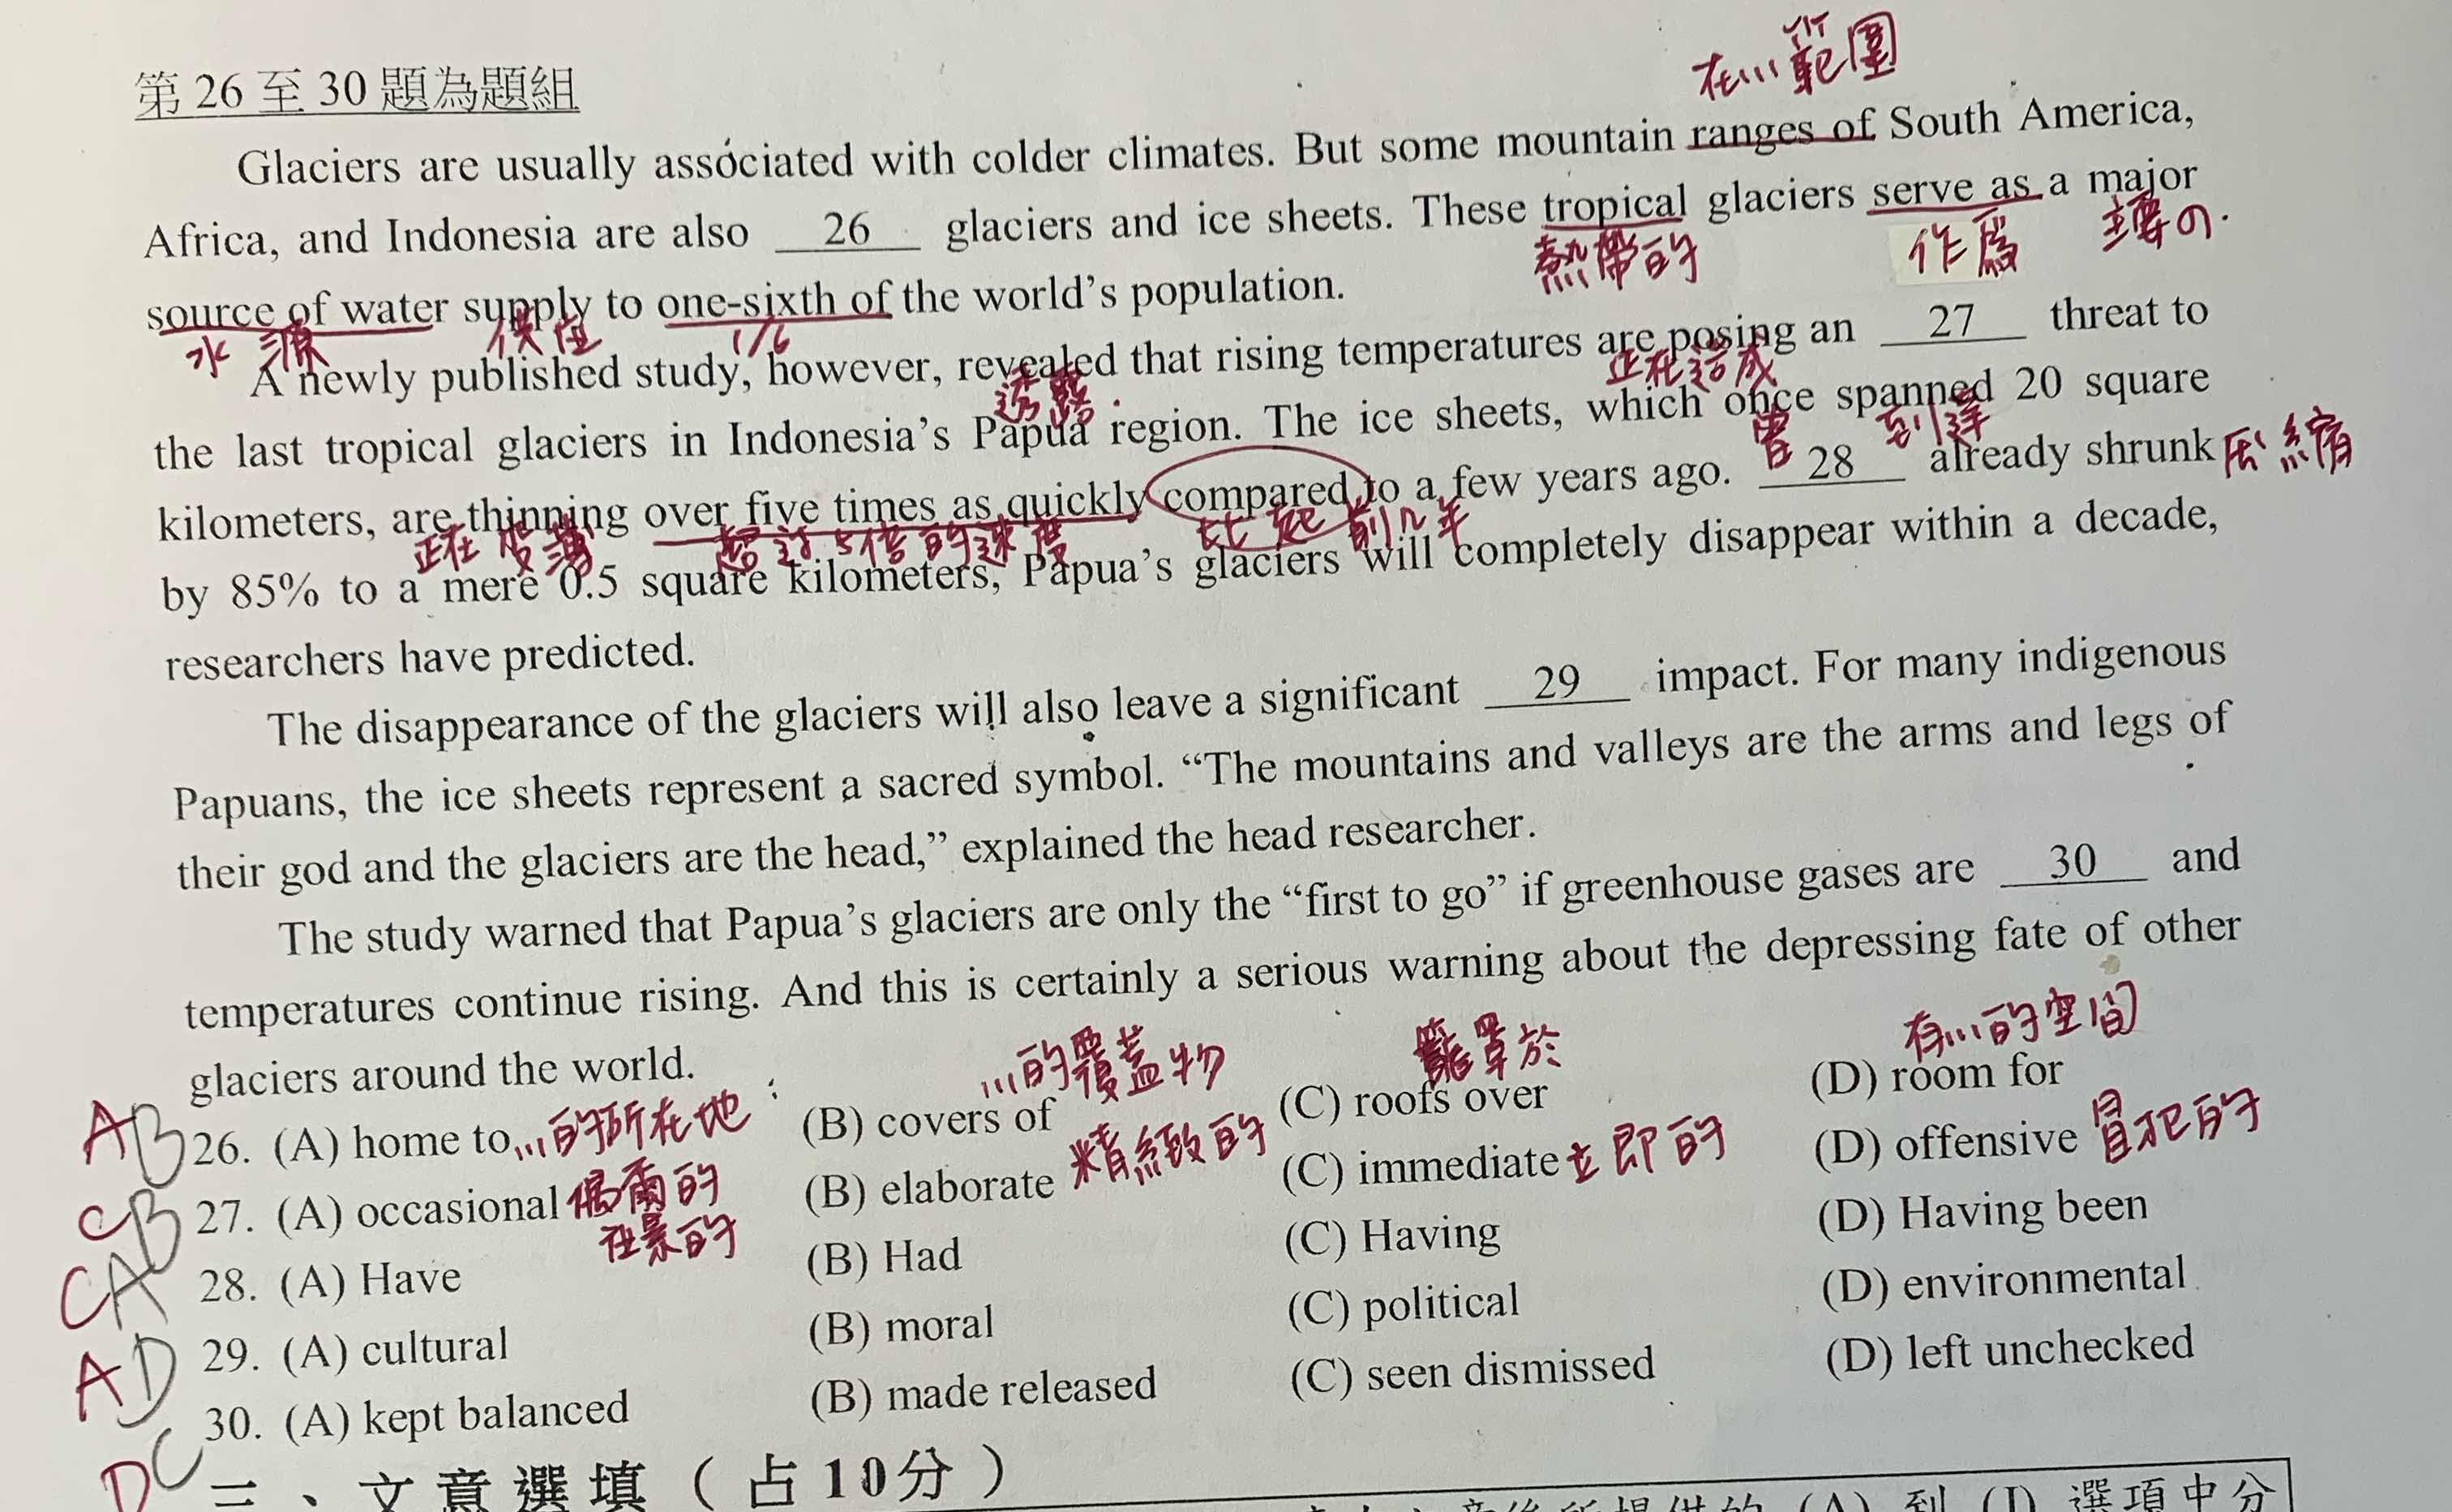 在...範圍
第 26 至 30 題為題組
Glaciers are usually associated with colder climates. But some mountain ranges of South America,
Africa, and Indonesia are also 26 glaciers and ice sheets. These tropical glaciers serve as a major
熱帶的 作為 主要の.
source of water supply to one-sixth of the world's population.
水 源 供應 1/6
A newly published study, however, revealed that rising temperatures are posing an 27 threat to
透露 正在造成
the last tropical glaciers in Indonesia's Papua region. The ice sheets, which once spanned 20 square
曾 到達
kilometers, are thinning over five times as quickly compared to a few years ago. 28 already shrunk 壓縮
正在 變薄 超過5倍的速度 比起 前幾年
by 85% to a mere 0.5 square kilometers, Papua's glaciers will completely disappear within a decade,
researchers have predicted.
The disappearance of the glaciers will also leave a significant 29 impact. For many indigenous
Papuans, the ice sheets represent a sacred symbol. “The mountains and valleys are the arms and legs of
their god and the glaciers are the head,” explained the head researcher.
The study warned that Papua's glaciers are only the “first to go” if greenhouse gases are 30 and
temperatures continue rising. And this is certainly a serious warning about the depressing fate of other
glaciers around the world.
...的覆蓋物 籠罩於 有...的空間
AB 26. (A) home to ...的所在地 (B) covers of (C) roofs over (D) room for
CB 27. (A) occasional 偶爾的 (B) elaborate 精緻的 (C) immediate 立即的 (D) offensive 冒犯的
CA 28. (A) Have (B) Had (C) Having (D) Having been
AD 29. (A) cultural (B) moral (C) political (D) environmental
DC 30. (A) kept balanced (B) made released (C) seen dismissed (D) left unchecked
三、文意選填（占10分）
(A) 到 (J) 選項中分